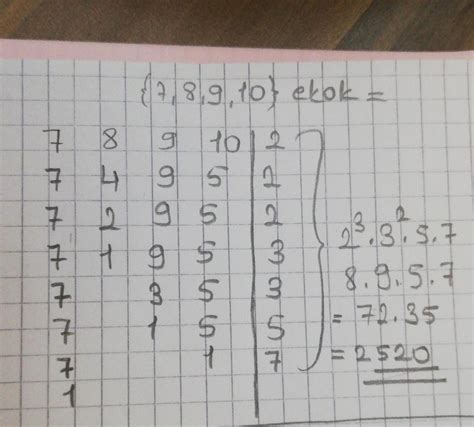 {7,8,9,10} ekok =
7 8 9 10 | 2
7 4 9 5 | 2
7 2 9 5 | 2
7 1 9 5 | 3
7 3 5 | 3
7 1 5 | 5
7 1 | 7
1
2³.3².5.7
8.9.5.7
= 72.35
= 2520